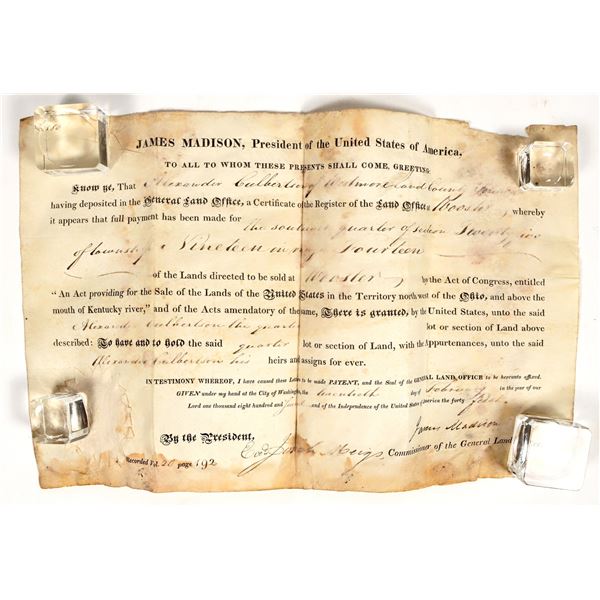 JAMES MADISON, President of the United States of America,
TO ALL TO WHOM THESE PRESENTS SHALL COME, GREETING:
Know ye, That Alexander Culbertson of Westmoreland County
having deposited in the General Land Office, a Certificate of the Register of the Land Office at Wooster, whereby
it appears that full payment has been made for the southeast quarter of section Twenty
of township Nineteen in range Fourteen
of the Lands directed to be sold at Wooster, by the Act of Congress, entitled
"An Act providing for the Sale of the Lands of the United States in the Territory northwest of the Ohio, and above the
mouth of Kentucky river," and of the Acts amendatory of the same, There is granted, by the United States, unto the said
Alexander Culbertson the quarter lot or section of Land above
described: To have and to hold the said quarter lot or section of Land, with the Appurtenances, unto the said
Alexander Culbertson his heirs and assigns for ever.
IN TESTIMONY WHEREOF, I have caused these Letters to be made PATENT, and the Seal of the GENERAL LAND OFFICE to be hereunto affixed.
GIVEN under my hand at the City of Washington, the twentieth day of February in the year of our
Lord one thousand eight hundred and and of the Independence of the United States of America the forty first.
By the President, James Madison
Josiah Meigs Commissioner of the General Land Office.
Recorded Vol. 20 page 192